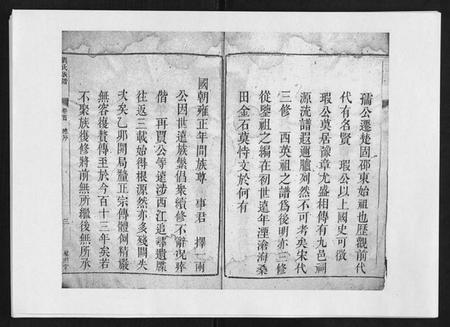 孺公遷楚固邵東始祖也歷觀前代
代有名賢 瑕公以上國史可徵
瑕公莫居豫章尤盛相傳有九邑祠
源流譜遐邇臚列然不可考矣宋代
三修 西英祖之譜為後明亦三修
從鑒祖之編在列世遠年湮滄海桑
田金石莫恃文於何有
國朝雍正年間族尊 事君 擇一兩
公因世遠族繁倡衆續修不辭況瘁
偕 再賈公等遠涉西江追尋遺牒
往返三載始得根源然亦多殘闕失
次矣乙卯開局釐正宗傳體例精嚴
無容復贅傳至於今百十三年矣若
不聚族復修將前無所繼後無所承
劉氏族譜
卷首
三